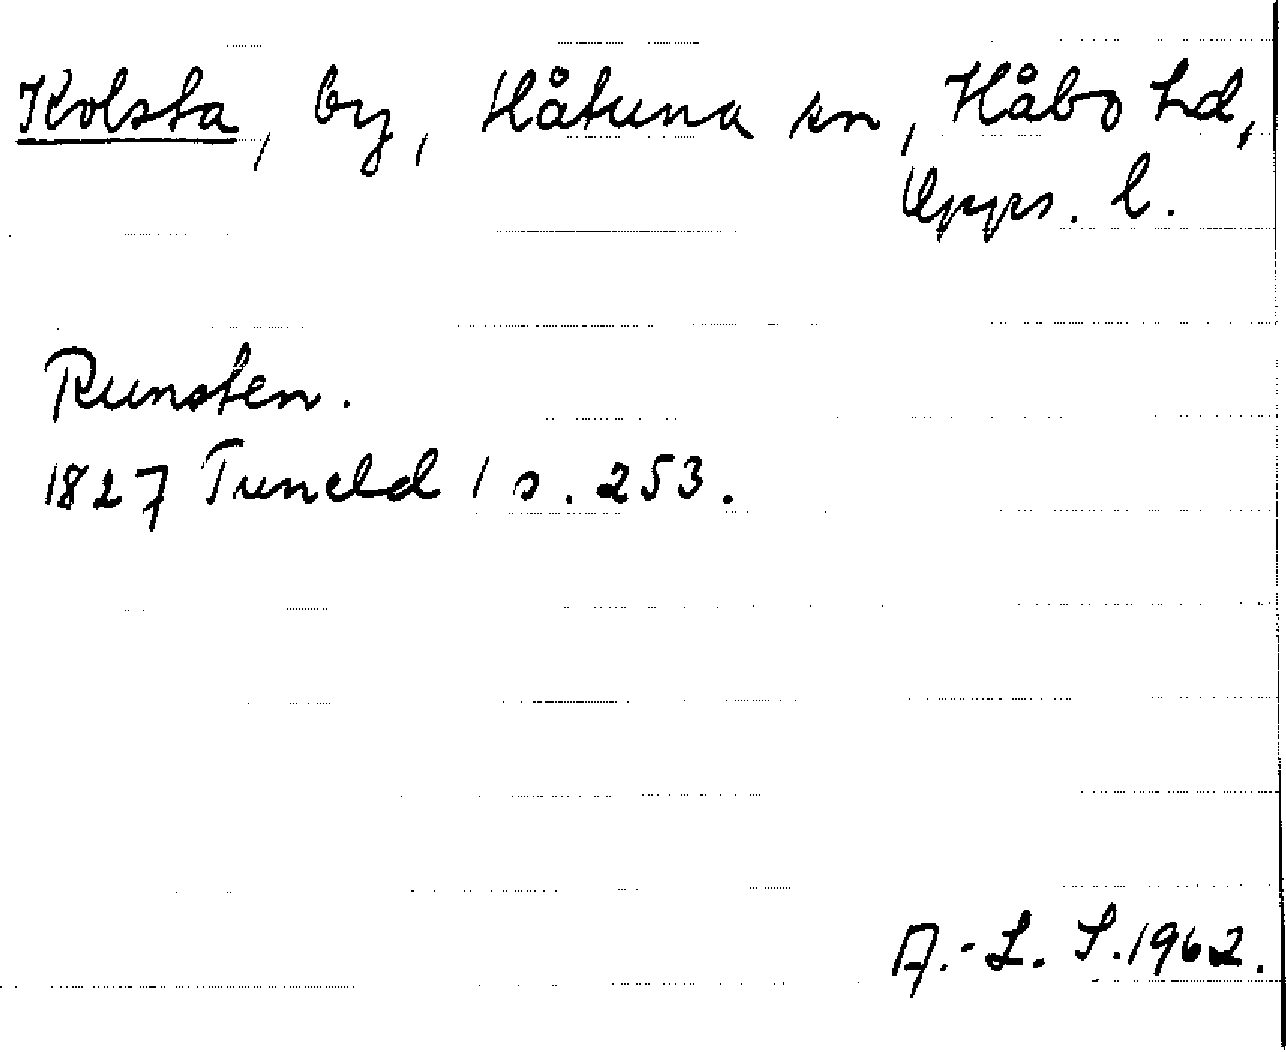 Kolsta, by, Håtuna sn, Håbo hd,
Upps. l.
Runsten.
1827 Tuneld 1 s. 253.
A.-L. S. 1962.